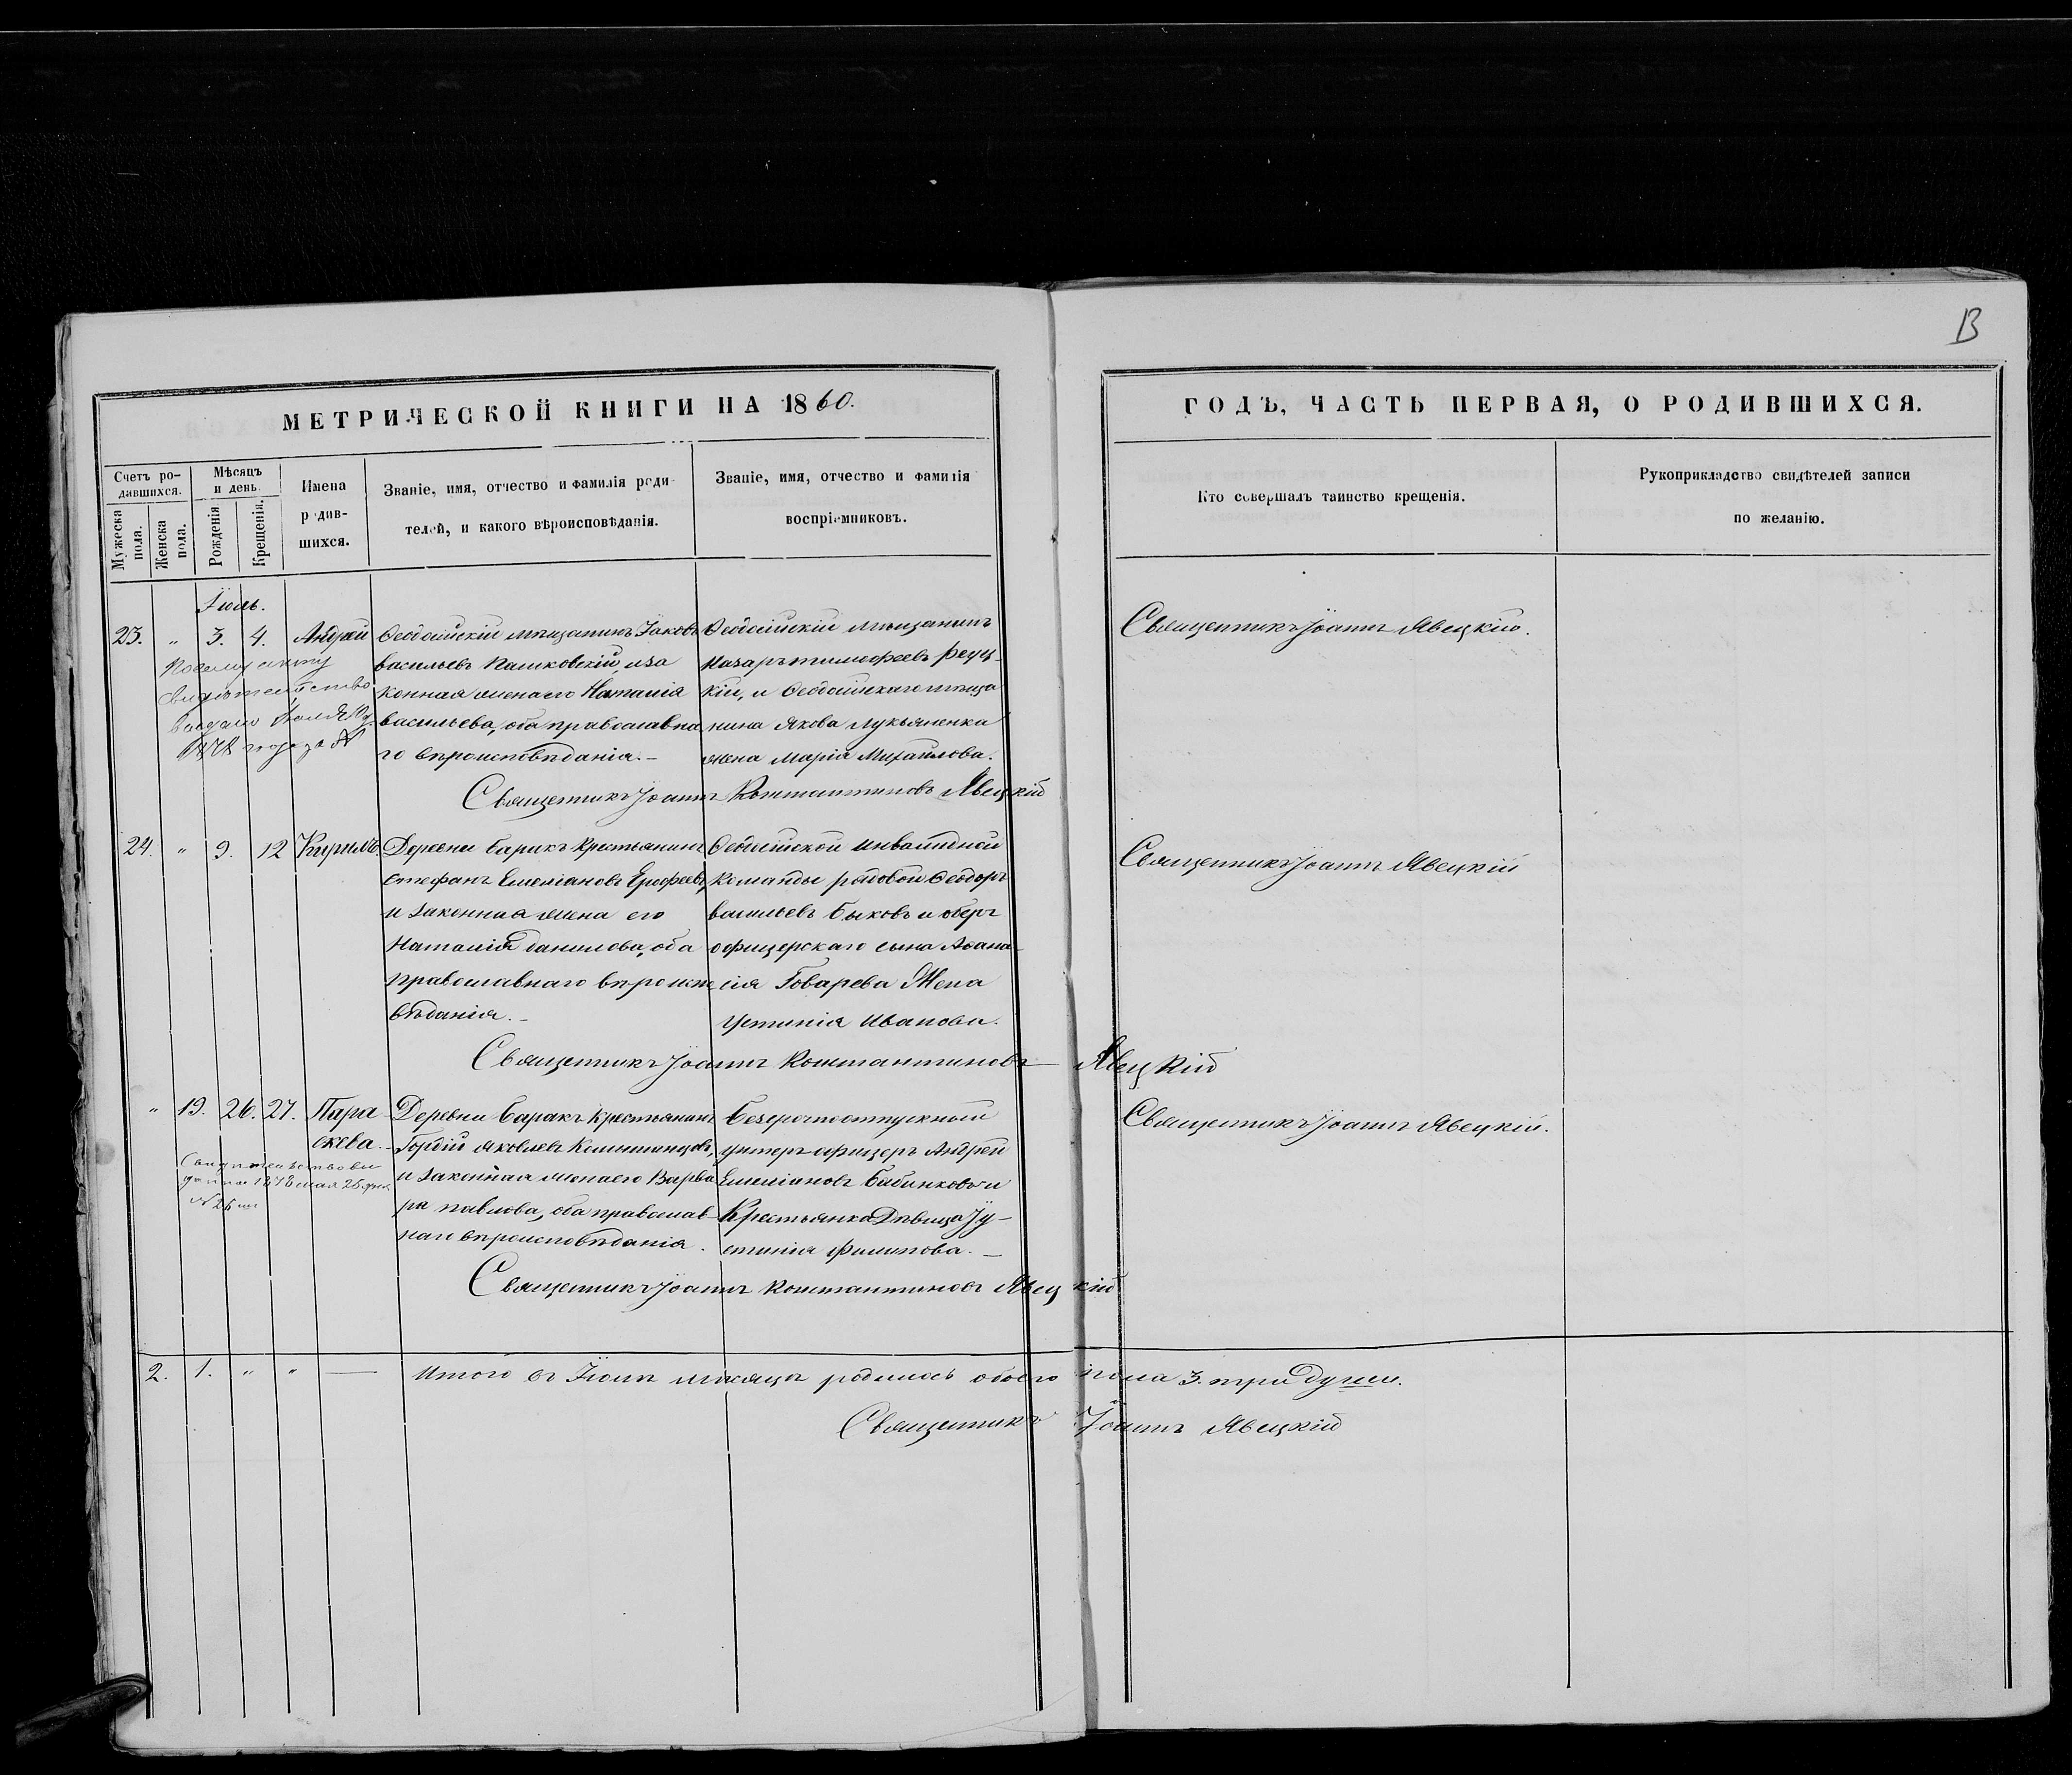 В
МЕТРИЧЕСКОЙ КНИГИ НА 1860.
ГОДЪ, ЧАСТЬ ПЕРВАЯ, О РОДИВШИХСЯ.
Счетъ ро-
дившихся.
Мужеска пола.
Женска пола.
Мѣсяцъ
и день.
Рожденія
Крещенія.
Имена
родив-
шихся.
Званіе, имя, отчество и фамилія роди-
телей, и какого вѣроисповѣданія.
Званіе, имя, отчество и фамилія
воспріемниковъ.
Кто совершалъ таинство крещенія.
Рукоприкладство свидѣтелей записи
по желанію.
Іюль.
23. " 3. 4. Андрей
Ѳеодосійскій мѣщанинъ Іаковъ
васильевъ Пашковскій, и за
конная жена его Наталія
васильева, оба православна
го вѣроисповѣданія.-
Ѳеодосійскій мѣщанинъ
Назаръ тимофеевъ
кій, и Ѳеодосійскаго мѣща
нина Якова Лукьяненка
жена Марія Михайлова.
Священникъ Іоаннъ Явецкій.
свидѣтельство
Священникъ Іоаннъ Константиновъ Явецкій
24. " 9. 12 Кирилъ.
Деревни Баракъ Крестьянинъ
стефанъ Емеліановъ Ерофеевъ,
и законная жена его
Наталія данилова, оба
православнаго вѣроиспо
вѣданія.-
Ѳеодосійской инвалидной
команды рядовой Ѳеодоръ
васильевъ Быковъ и оберъ
офицерскаго сына Аѳана-
сія Говарева Жена
Устинія Иванова.
Священникъ Іоаннъ Явецкій
Священникъ Іоаннъ Константиновъ Явецкій
" 19. 26. 27. Пара
скева.-
Деревни Баракъ Крестьянинъ
Гордій яковлевъ
и законная жена его Варва
ра павлова, оба православ-
наго вѣроисповѣданія.
Безсрочноотпускной
унтеръ-офицеръ Андрей
Емеліановъ Бабинковъ и
Крестьянка Дѣвица Іу-
стинія филипова.-
Священникъ Іоаннъ Явецкій.
Свидѣтельство вы
дано 1878 мая 25 дня
№ 26
Священникъ Іоаннъ Константиновъ Явецкій
2. 1. " " — Итого въ Іюлѣ мѣсяцѣ родилось обоего пола 3. три души.
Священникъ Іоаннъ Явецкій